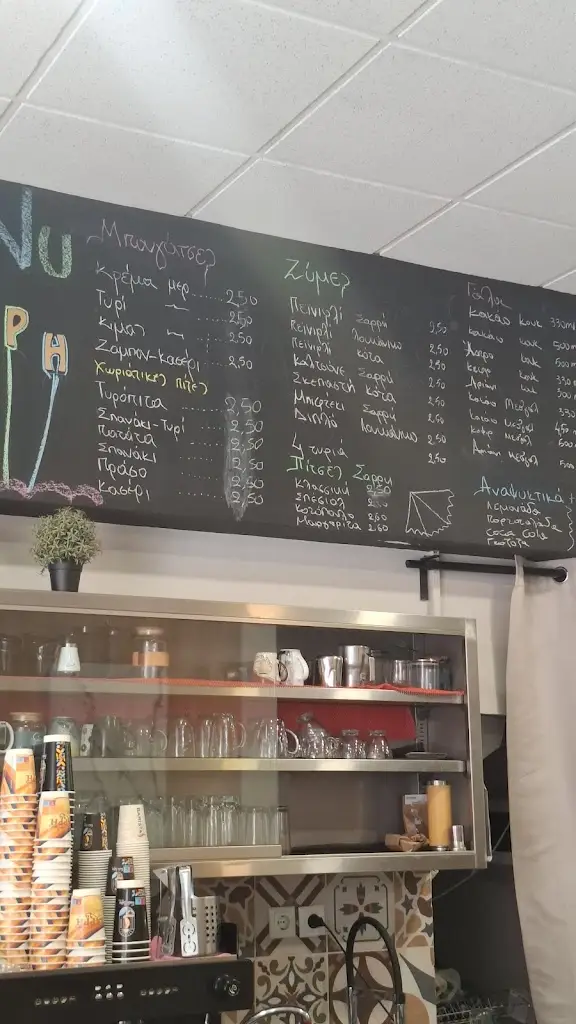 NU
ΡΗ
Μπουγάτσες
Κρέμα μερ. ...... 2,50
Τυρί 〃 ...... 2,50
Κιμάς 〃 ......
Ζαμπον-κασέρι ...... 2,50
Χωριάτικες Πίτες
Τυρόπιτα ...... 2,50
Σπανάκι-Τυρί ...... 2,50
Πατάτα ...... 2,50
Σπανάκι ...... 2,50
Πράσο ...... 2,50
Κασέρι ...... 2,50
Ζύμες
Πεινιρλί Σαρρή 2,50
Πεινιρλί Λουκάνικο 2,50
Πεινιρλί κότα 2,50
Καλτσόνε Σαρρή 2,50
Σκεπαστή κότα 2,50
Σαρρή 2,50
Διπλό Λουκάνικο 2,50
4 τυριά 2,50
Πίτσες Σαρρή
Κλασσική 2,50
Σπέσιαλ 2,60
Κοτόπουλο 2,60
Μαργαρίτα 2,60
Γάλα
κακάο κουκ 330ml
κακάο κουκ 500m
Άσπρο κουκ 500
κουκ 330
Αριάνι 500
κακάο Μεβγάλ 330
κακάο μεβγάλ 450
καφέ μεβγάλ 500
Αριάνι Μεβγάλ 500
Αναψυκτικά
Λεμονάδα
Πορτοκαλάδα
Coca Cola
Γκαζόζα